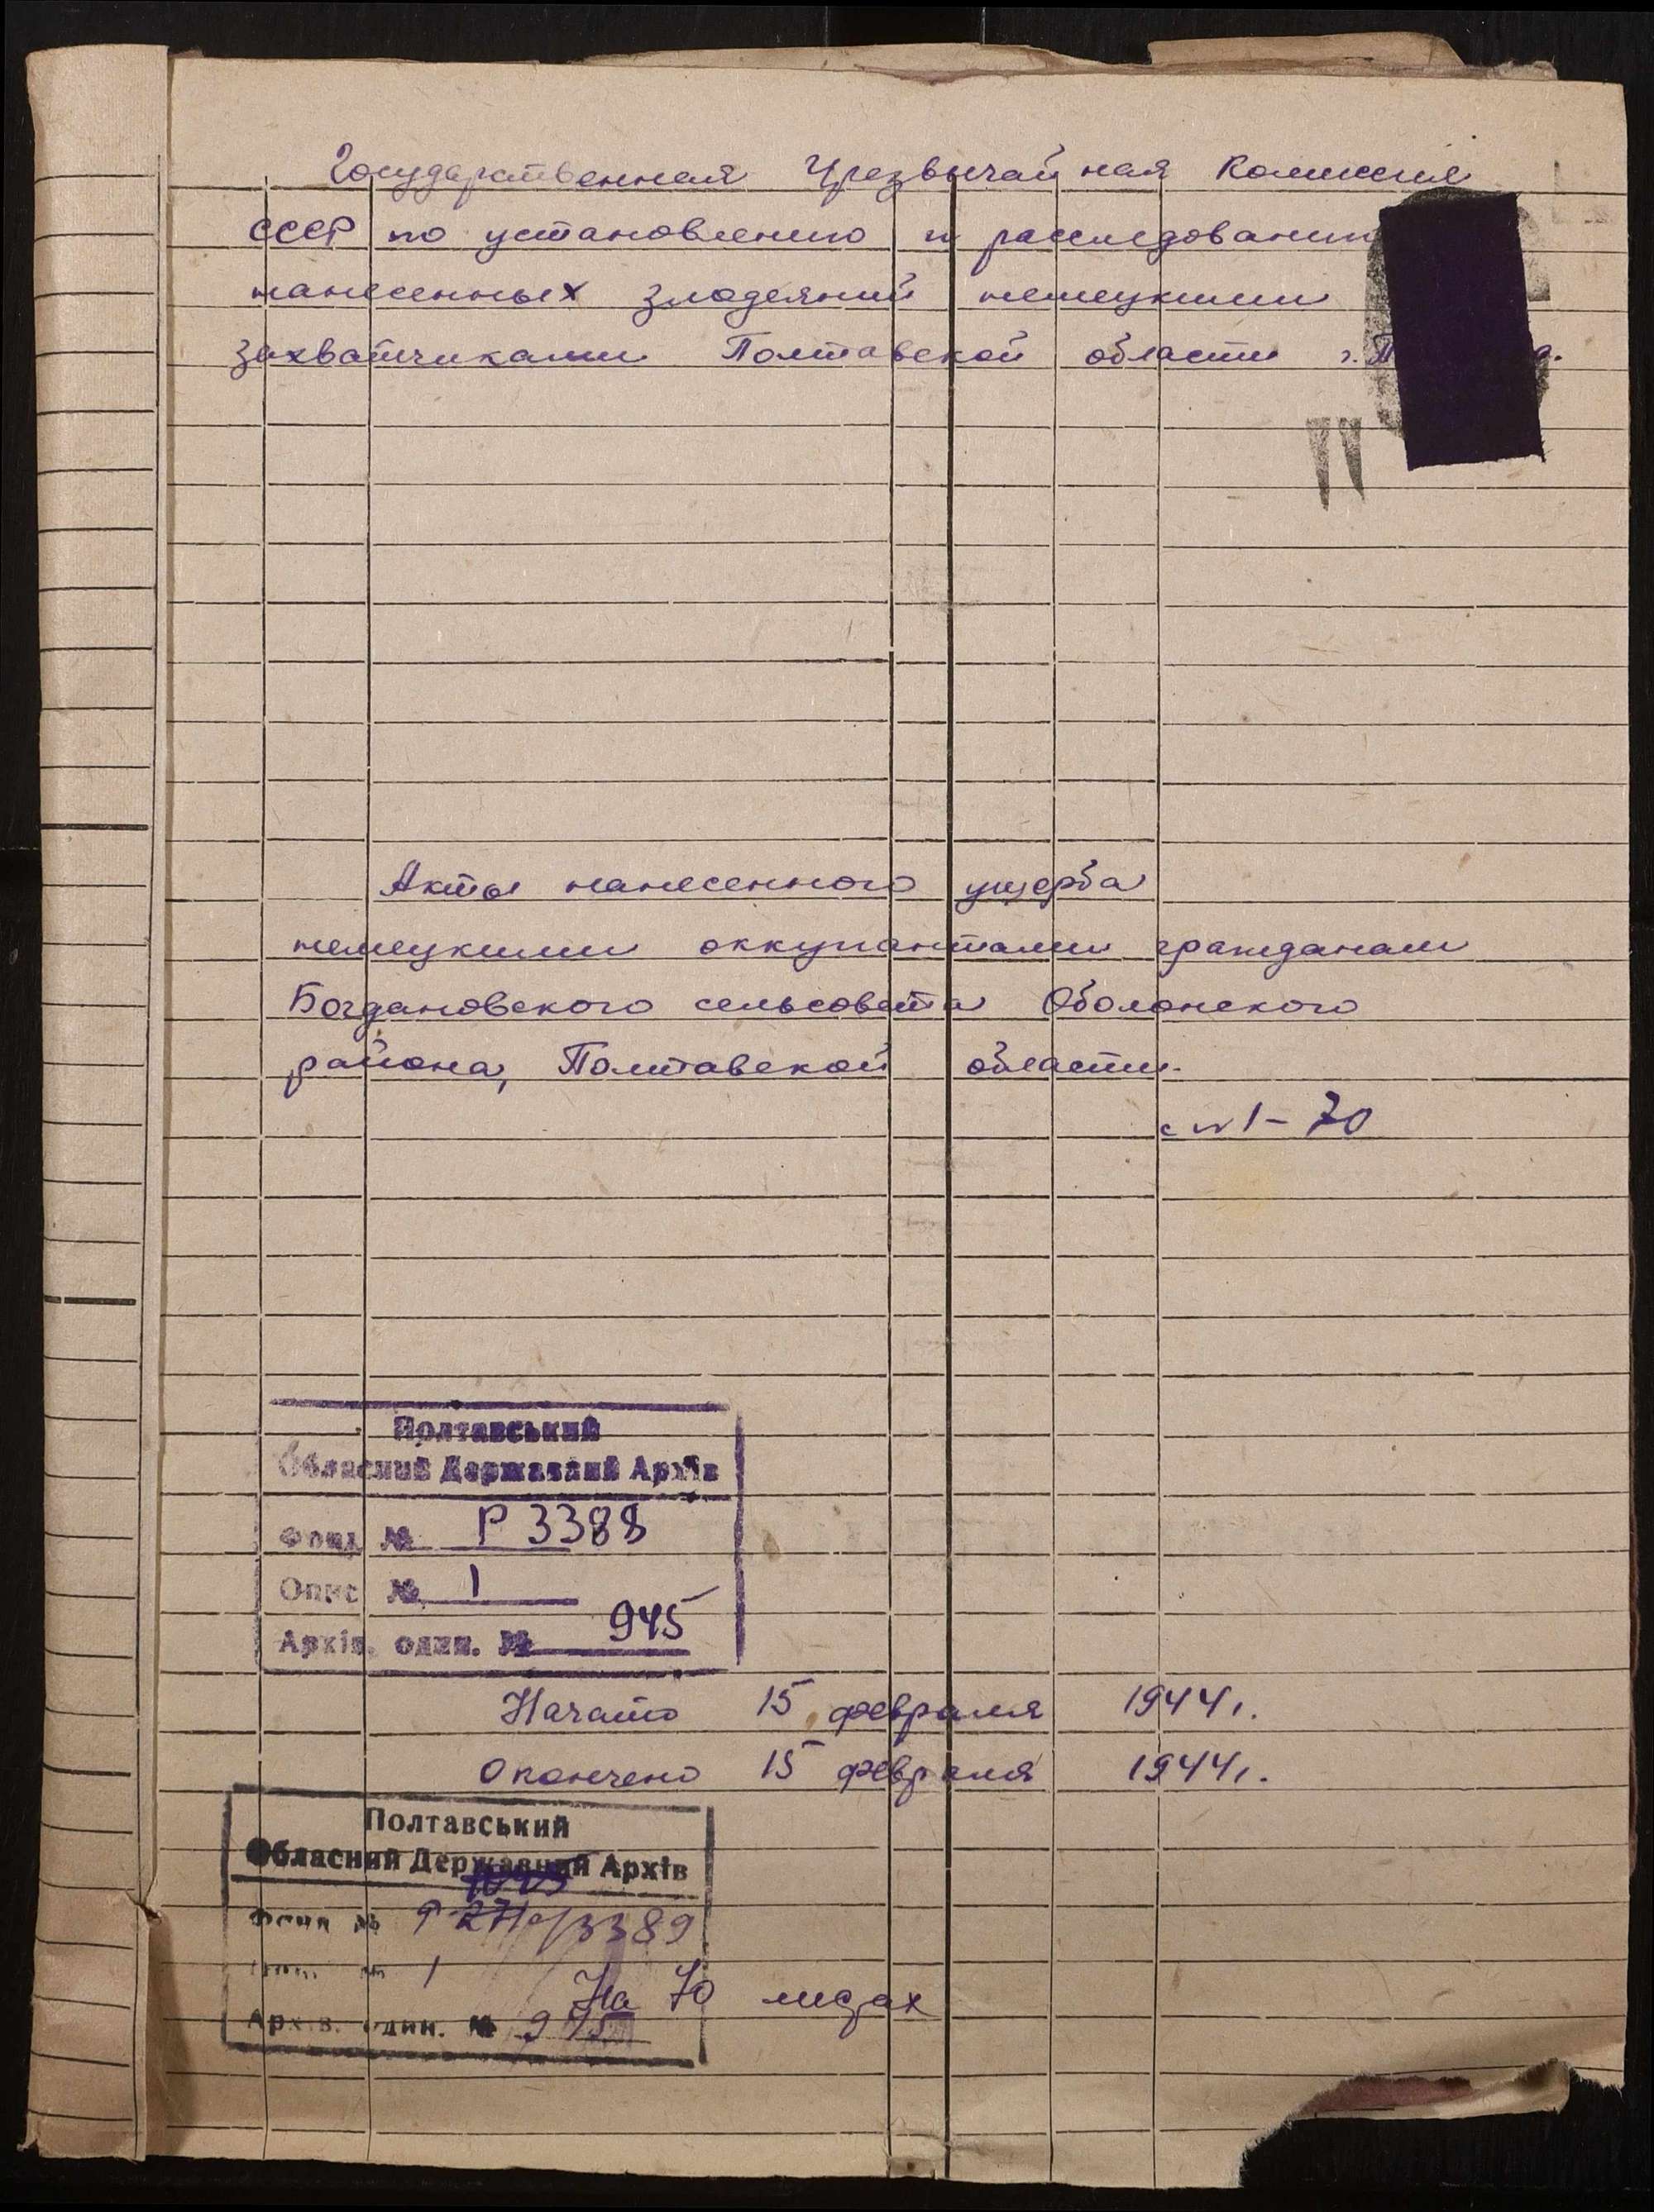 Государственная Чрезвычайная Комиссия
СССР по установлению и расследованию
нанесенных злодеяний немецкими
захватчиками Полтавской области г.
Акты нанесенного ущерба
немецкими оккупантами гражданам
Богдановского сельсовета Оболонского
района, Полтавской области.
с №1-70
Полтавський
Обласний Державний Архів
Фонд № Р 3388
Опис № 1
Архів. один. № 945
Начато 15 февраля 1944 г.
Окончено 15 февраля 1944 г.
Полтавський
Обласний Державний Архів
Фонд № 3389
№ 1
На 70 лисдах
Архів. один. № 945